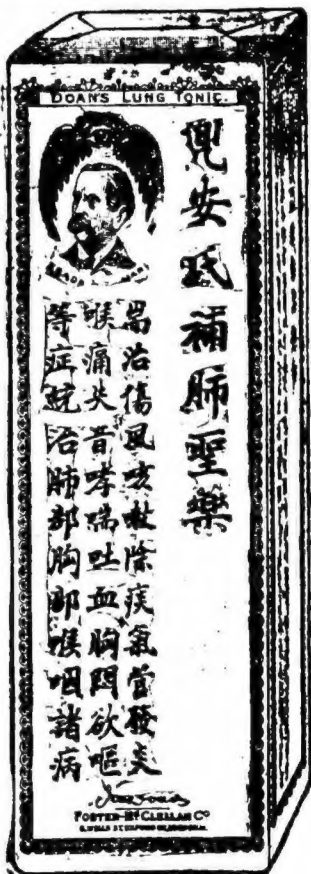 DOAN'S LUNG TONIC.
兜安氏補肺聖藥
耑治傷風咳嗽除痰氣管發炎
喉痛失音哮喘吐血胸悶欲嘔
等症統治肺部胸部喉咽諸病
FOSTER-MCCLELLAN CO